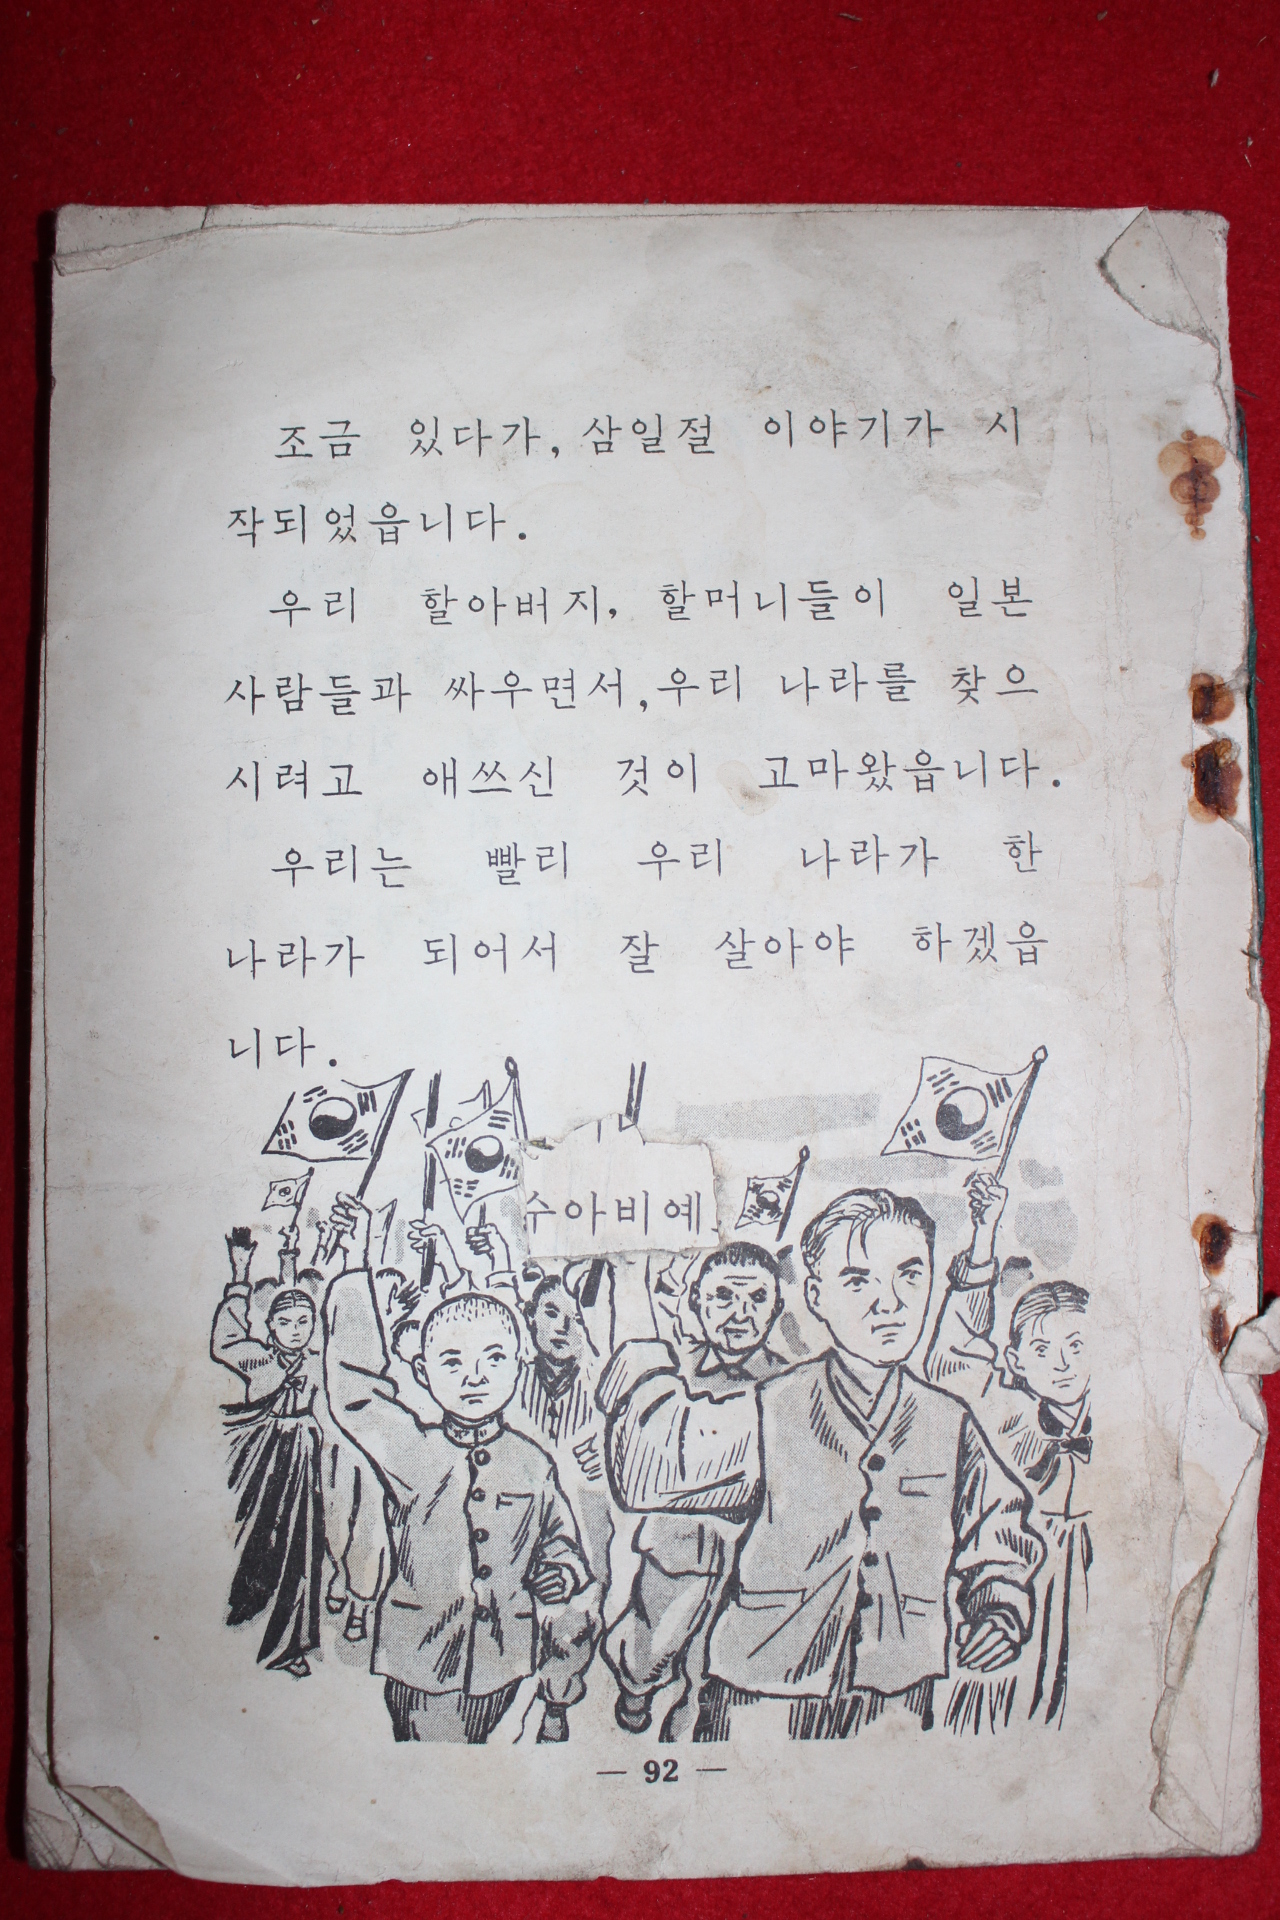 조금 있다가, 삼일절 이야기가 시
작되었읍니다.
우리 할아버지, 할머니들이 일본
사람들과 싸우면서, 우리 나라를 찾으
시려고 애쓰신 것이 고마왔읍니다.
우리는 빨리 우리 나라가 한
나라가 되어서 잘 살아야 하겠읍
니다.
수아비예
— 92 —